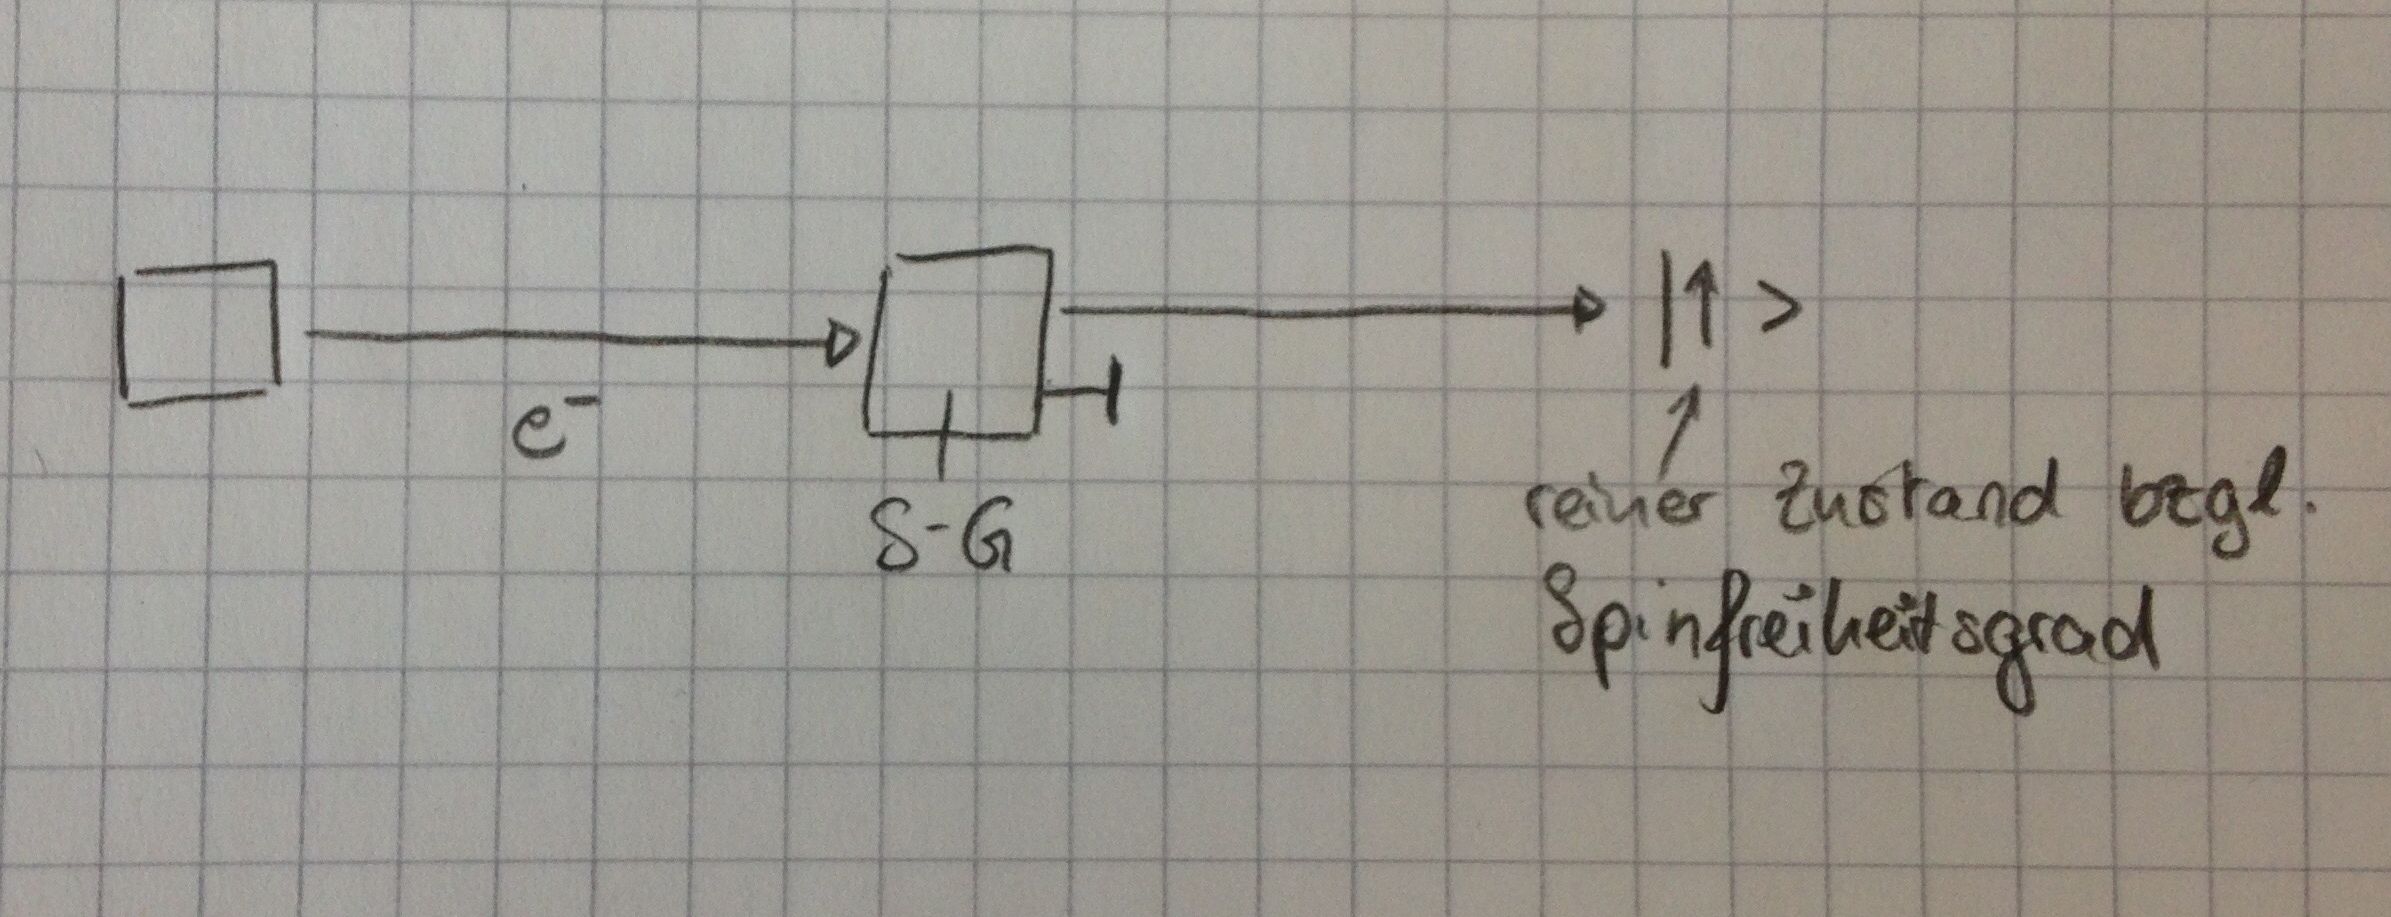 |↑>
e⁻
S-G
reiner Zustand bzgl.
Spinfreiheitsgrad